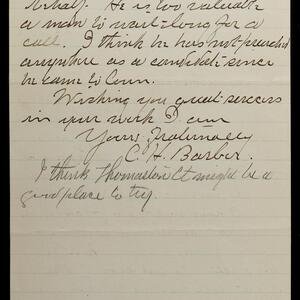 behalf. He is too valuable
a man to wait long for a
call. I think he has not preached
anywhere as a candidate since
he came to Conn.
Wishing you great success
in your work I am
Yours fraternally
C. H. Barber.
I think Thomaston Ct might be a
good place to try.